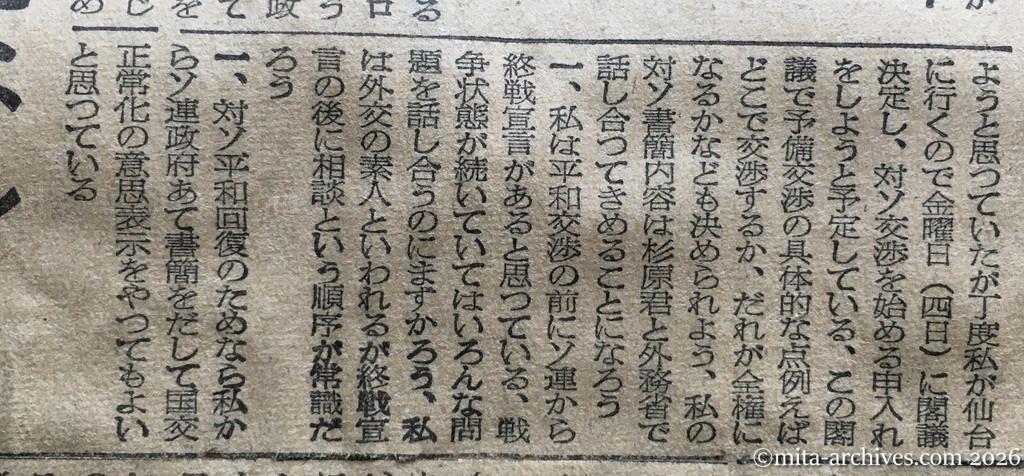 ようと思つていたが丁度私が仙台
に行くので金曜日（四日）に閣議
決定し、対ソ交渉を始める申入れ
をしようと予定している、この閣
議で予備交渉の具体的な点例えば
どこで交渉するか、だれが全権に
なるかなども決められよう、私の
対ソ書簡内容は杉原君と外務省で
話し合つてきめることになろう
一、私は平和交渉の前にソ連から
終戦宣言があると思つている、戦
争状態が続いていてはいろんな問
題を話し合うのにまずかろう、私
は外交の素人といわれるが終戦宣
言の後に相談という順序が常識だ
ろう
一、対ソ平和回復のためなら私か
らソ連政府あて書簡をだして国交
正常化の意思表示をやつてもよい
と思つている
©mita-archives.com 2026